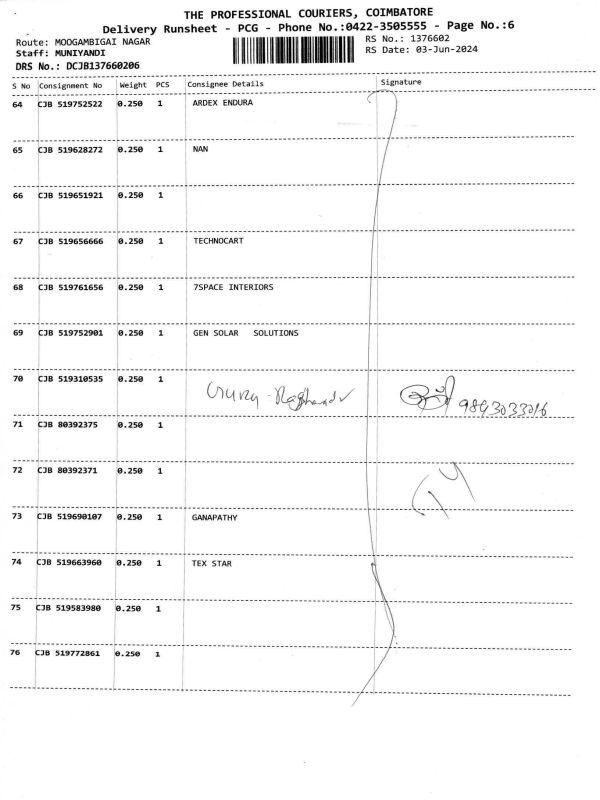 THE PROFESSIONAL COURIERS, COIMBATORE
Delivery Runsheet - PCG - Phone No.:0422-3505555 - Page No.:6
Route: MOOGAMBIGAI NAGAR RS No.: 1376602
Staff: MUNIYANDI RS Date: 03-Jun-2024
DRS No.: DCJB137660206
S No Consignment No Weight PCS Consignee Details Signature
64 CJB 519752522 0.250 1 ARDEX ENDURA
65 CJB 519628272 0.250 1 NAN
66 CJB 519651921 0.250 1
67 CJB 519656666 0.250 1 TECHNOCART
68 CJB 519761656 0.250 1 7SPACE INTERIORS
69 CJB 519752901 0.250 1 GEN SOLAR SOLUTIONS
70 CJB 519310535 0.250 1
71 CJB 80392375 0.250 1
72 CJB 80392371 0.250 1
73 CJB 519690107 0.250 1 GANAPATHY
74 CJB 519663960 0.250 1 TEX STAR
75 CJB 519583980 0.250 1
76 CJB 519772861 0.250 1